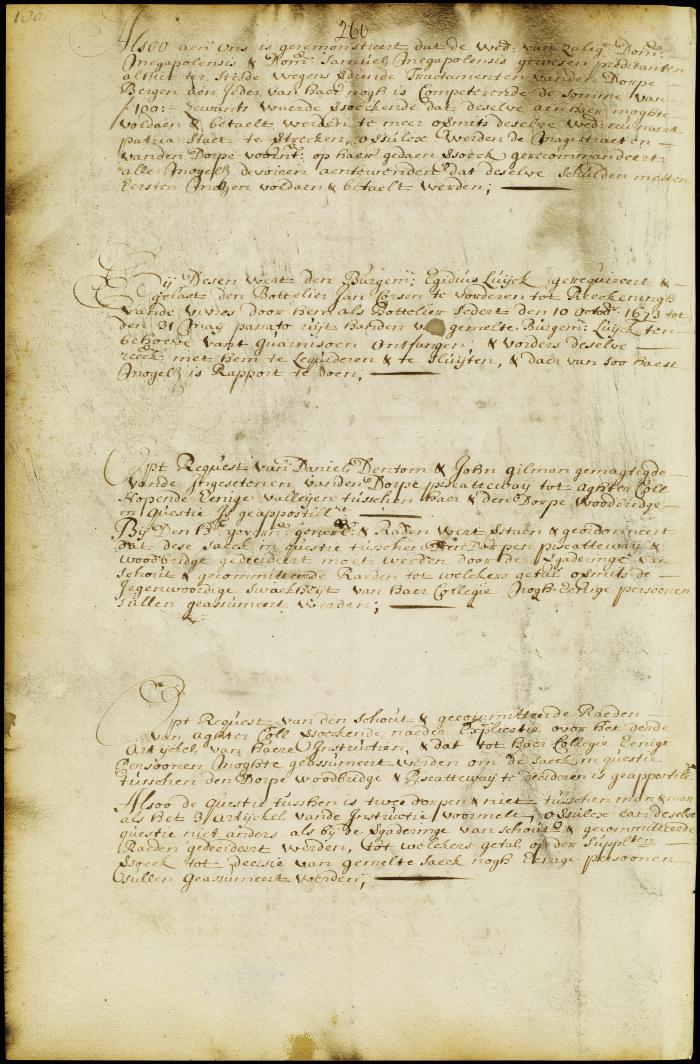 100.
260
Alsoo aen ons is geremonstreert dat de Wed: van Zalig: Dom:
Megapolensis & Dom: Samuel Megapolensis gewesen predikanten
alhier ter Stede wegens Tractamenten vanden Dorpe
Bergen aen Ider van haer nogh is Competerende de Somme van
f 100: Zewants versoeckende dat deselve aen haer moghte
voldaen & betaelt werden te meer opmits deselve Wed: nu naer't
patria Staet te Strecken, Soo werden de Magistraet en
vanden Dorpe voorn't: op haer gedaen versoeck gerecommandeert
alle Mogel: devoiren aentewenden dat deselve Schulden metten
Eersten Mogen voldaen & betaelt werden;
Bij Desen wert den Burgem: Egidius Luijck gerequireert &
gelast den Bottelier Jan te vorderen tot Reeckeningh
vande vivres door hem als Bottelier Sedert den 10 Octobr: 1673 tot
den 31 May passato uijt handen van gemelte Burgem: Luijck ten
behoeve vant Guarnisoen Ontfangen; & vorders deselve
reeck: met hem te Lequideren & te sluijten, & daer van soo haest
Mogel: is Rapport te doen;
Opt Request van Daniel Dentorn & John gilman gemagtigde
vande Ingesetenen vanden Dorpe piscatteway tot aghter Coll
nopende Eenige valleijen tusschen haer & den Dorpe Woodbridge
in questie Is geappostill:t
Bij Den H:r govern: generl: & Raden wert verstaen & geordonneert
dat dese Saeck in questie tusschen den Dorpen piscatteway &
woodbridge gedecideert moet werden door de Vergaderinge van
Schout & gecommitteerde Raeden tot welckers getal opmits de
Jegenwoordige Swackheijt van haer Collegie Nogh Eenige persoonen
sullen geassumeert werden;
Opt Request van den Schout & gecommitteerde Raeden
van aghter Coll versoeckende naeder Explicatie over het derde
Artijckel van haere Instructien, & dat tot haer Collegie Eenige
Persoonen Moghte geassumeert werden om de Saeck in questie
tusschen den Dorpe woodbridge & Piscatteway te decideren is geappostill:
Alsoo de questie tusschen is twee dorpen & niet tusschen man & man
als het 3 Artijckel vande Instructie voormelt, Soo can deselve
questie niet anders als bij de Vergaderinge van Schout & gecommitteerde
Raeden gedecideert werden, tot welckers getal op der Supplten
versoeck tot decisie van gemelte Saeck nogh Eenige persoonen
sullen geassumeert werden;